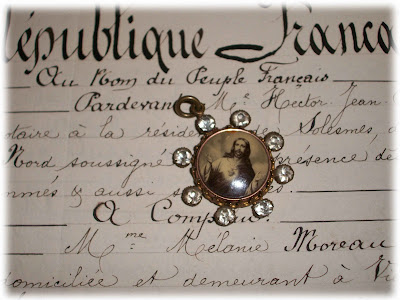 République França
Au Nom du Peuple Français
Pardevan Me Hector Jean
otaire à la réside de Solesmes,
Nord soussigné présence de
mmés & aussi so
A Comparu
Mme Mélanie Moreau
domiciliée et demeurant à Vi